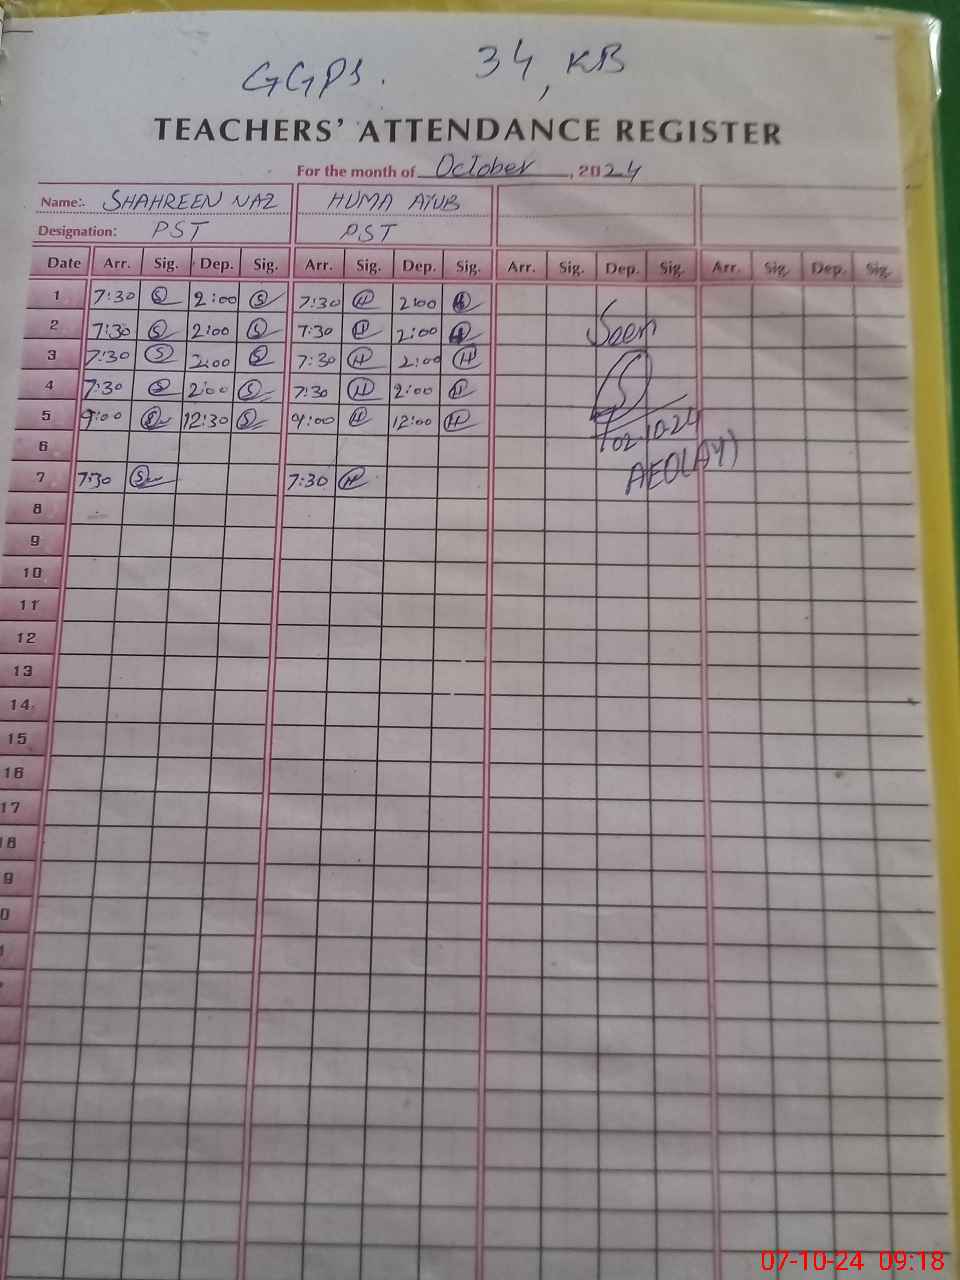 GGPS. 34, KB
TEACHERS' ATTENDANCE REGISTER
For the month of October, 2024
Name: SHAHREEN NAZ HUMA AYUB
Designation: PST PST
Date Arr. Sig. Dep. Sig. Arr. Sig. Dep. Sig. Arr. Sig. Dep. Sig. Arr. Sig. Dep. Sig.
1 7:30 S 2:00 S 7:30 H 2:00 H
2 7:30 S 2:00 S 7:30 H 2:00 H Seen
3 7:30 S 2:00 S 7:30 H 2:00 H
4 7:30 S 2:00 S 7:30 H 2:00 H
5 9:00 S 12:30 S 9:00 H 12:00 H
02-10-24
6
AEO
7 7:30 S 7:30 H
8
9
10
11
12
13
14
15
16
17
18
9
0
07-10-24 09:18